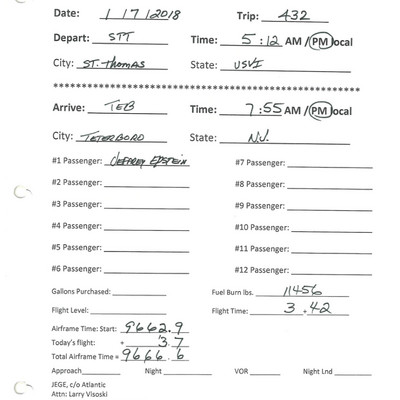 Date: 1 / 7 / 2018 Trip: 432
Depart: STT Time: 5:12 AM / PM local
City: ST. Thomas State: USVI
******************************************************
Arrive: TEB Time: 7:55 AM / PM local
City: TETERBORO State: N.J.
#1 Passenger: JEFFREY EPSTEIN #7 Passenger:
#2 Passenger: #8 Passenger:
#3 Passenger: #9 Passenger:
#4 Passenger: #10 Passenger:
#5 Passenger: #11 Passenger:
#6 Passenger: #12 Passenger:
Gallons Purchased: Fuel Burn lbs. 11456
Flight Level: Flight Time: 3 + 42
Airframe Time: Start: 9662.9
Today's flight: + 3.7
Total Airframe Time = 9666.6
Approach Night VOR Night Lnd
JEGE, c/o Atlantic
Attn: Larry Visoski